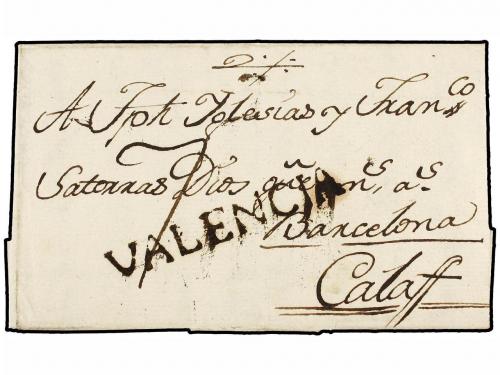 A Jph Yglesias y Franco
Satorras Dios gue ms as
VALENCIA
Barcelona
Calaff